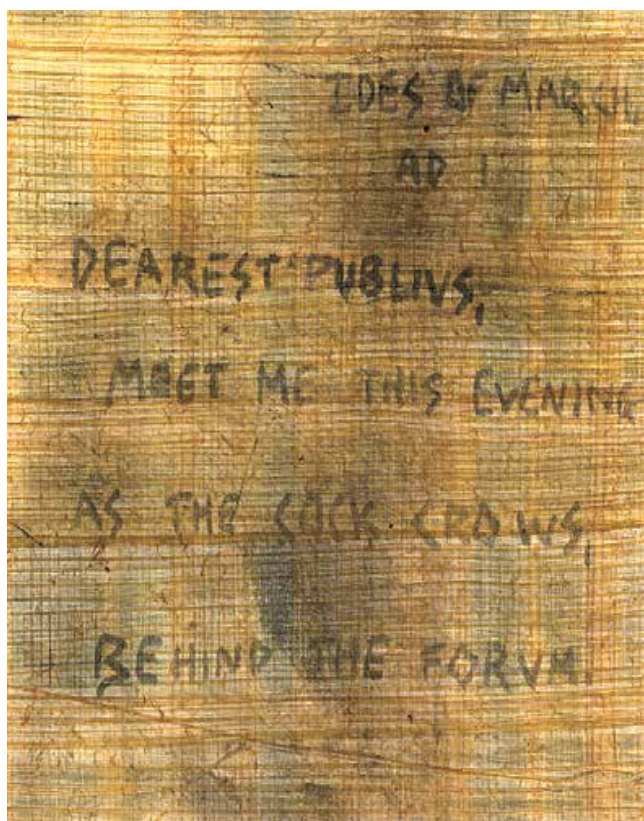 IDES OF MARCH
AD 1
DEAREST PUBLIVS,
MEET ME THIS EVENING
AS THE COCK CROWS,
BEHIND THE FORVM.